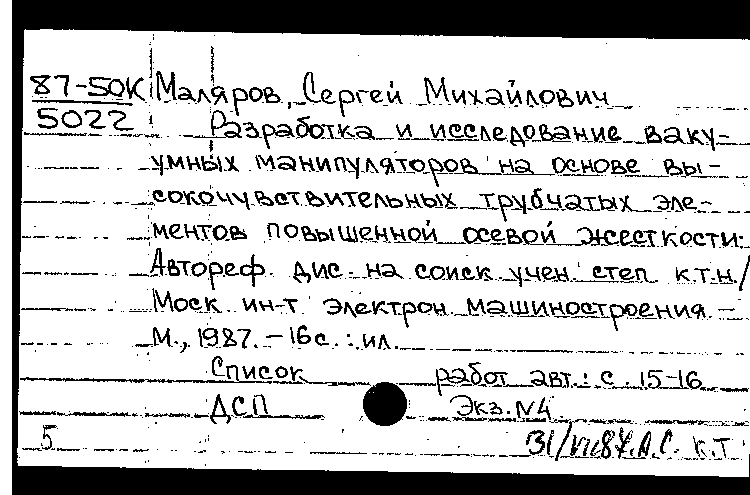 87-50К Маляров, Сергей Михайлович
5022 Разработка и исследование ваку-
умных манипуляторов на основе вы-
сокочувствительных трубчатых эле-
ментов повышенной осевой жесткости:
Автореф. дис. на соиск. учен. степ. к.т.н./
Моск. ин-т электрон. машиностроения. -
М., 1987. - 16 с. : ил.
Список работ авт.: с. 15-16
ДСП Экз. №4.
5 К.Т